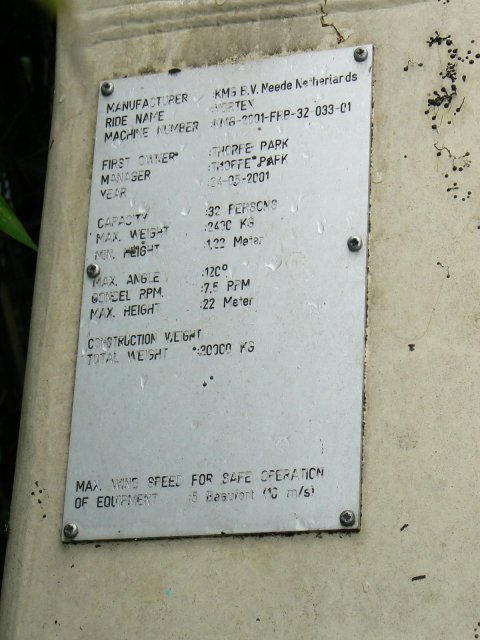 MANUFACTURER :KMG B.V. Neede Netherlands
RIDE NAME :VORTEX
MACHINE NUMBER :KMG-2001-FRB-32-033-01
FIRST OWNER :THORPE PARK
MANAGER :THORPE PARK
YEAR :24-05-2001
CAPACITY :32 PERSONS
MAX. WEIGHT :2400 KG
MIN. HEIGHT :1,22 Meter
MAX. ANGLE :120°
GONDEL RPM. :7,5 RPM
MAX. HEIGHT :22 Meter
CONSTRUCTION WEIGHT
TOTAL WEIGHT :20000 KG
MAX. WIND SPEED FOR SAFE OPERATION
OF EQUIPMENT :5 Beaufort (10 m/s)